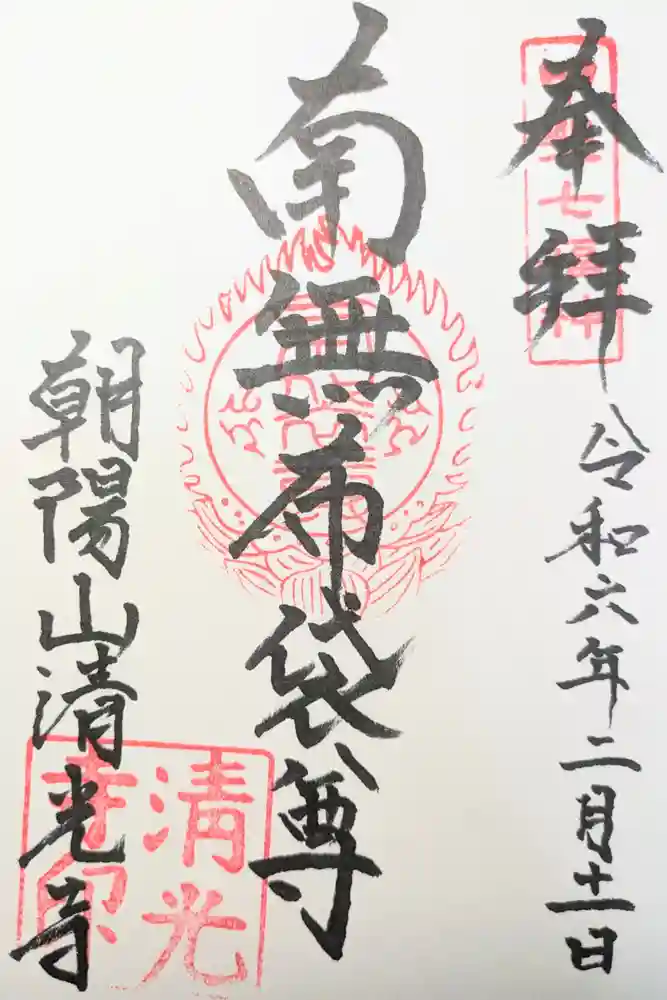 奉拝
令和六年二月十一日
南無布袋尊
朝陽山清光寺
七福神
清光
寺印